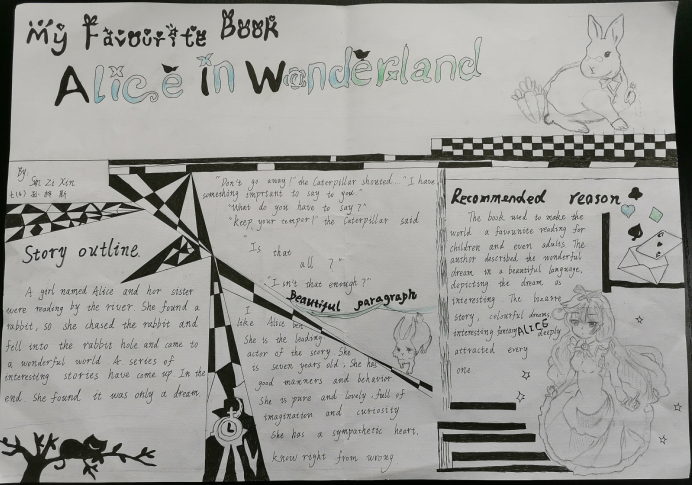 My Favourite Book
Alice in Wonderland
By
Story outline.
A girl named Alice and her sister
were reading by the river. She found a
rabbit, so she chased the rabbit and
fell into the rabbit hole and came to
a wonderful world A series of
interesting stories have come up In the
end. She found it was only a dream.
"Don't go away!" the Caterpillar shouted... "I have
something important to say to you"
"What do you have to say?"
"keep your temper!" the Caterpillar said
"Is that
all ?"
"I isn't that enough?"
Beautiful paragraph
I
like Alice
She is the leading
actor of the story. She
is seven years old, She has
good manners and behavior
She is pure and lovely, full of
imagination and curiosity
She has a sympathetic heart.
know right from wrong
Recommended reason
The book used to make the
world a favourite reading for
children and even adults. The
author described the wonderful
dream in a beautiful language,
depicting the dream as
interesting The bizarre
story, colourful dreams,
interesting fantasy deeply
ALICE
attracted every
one